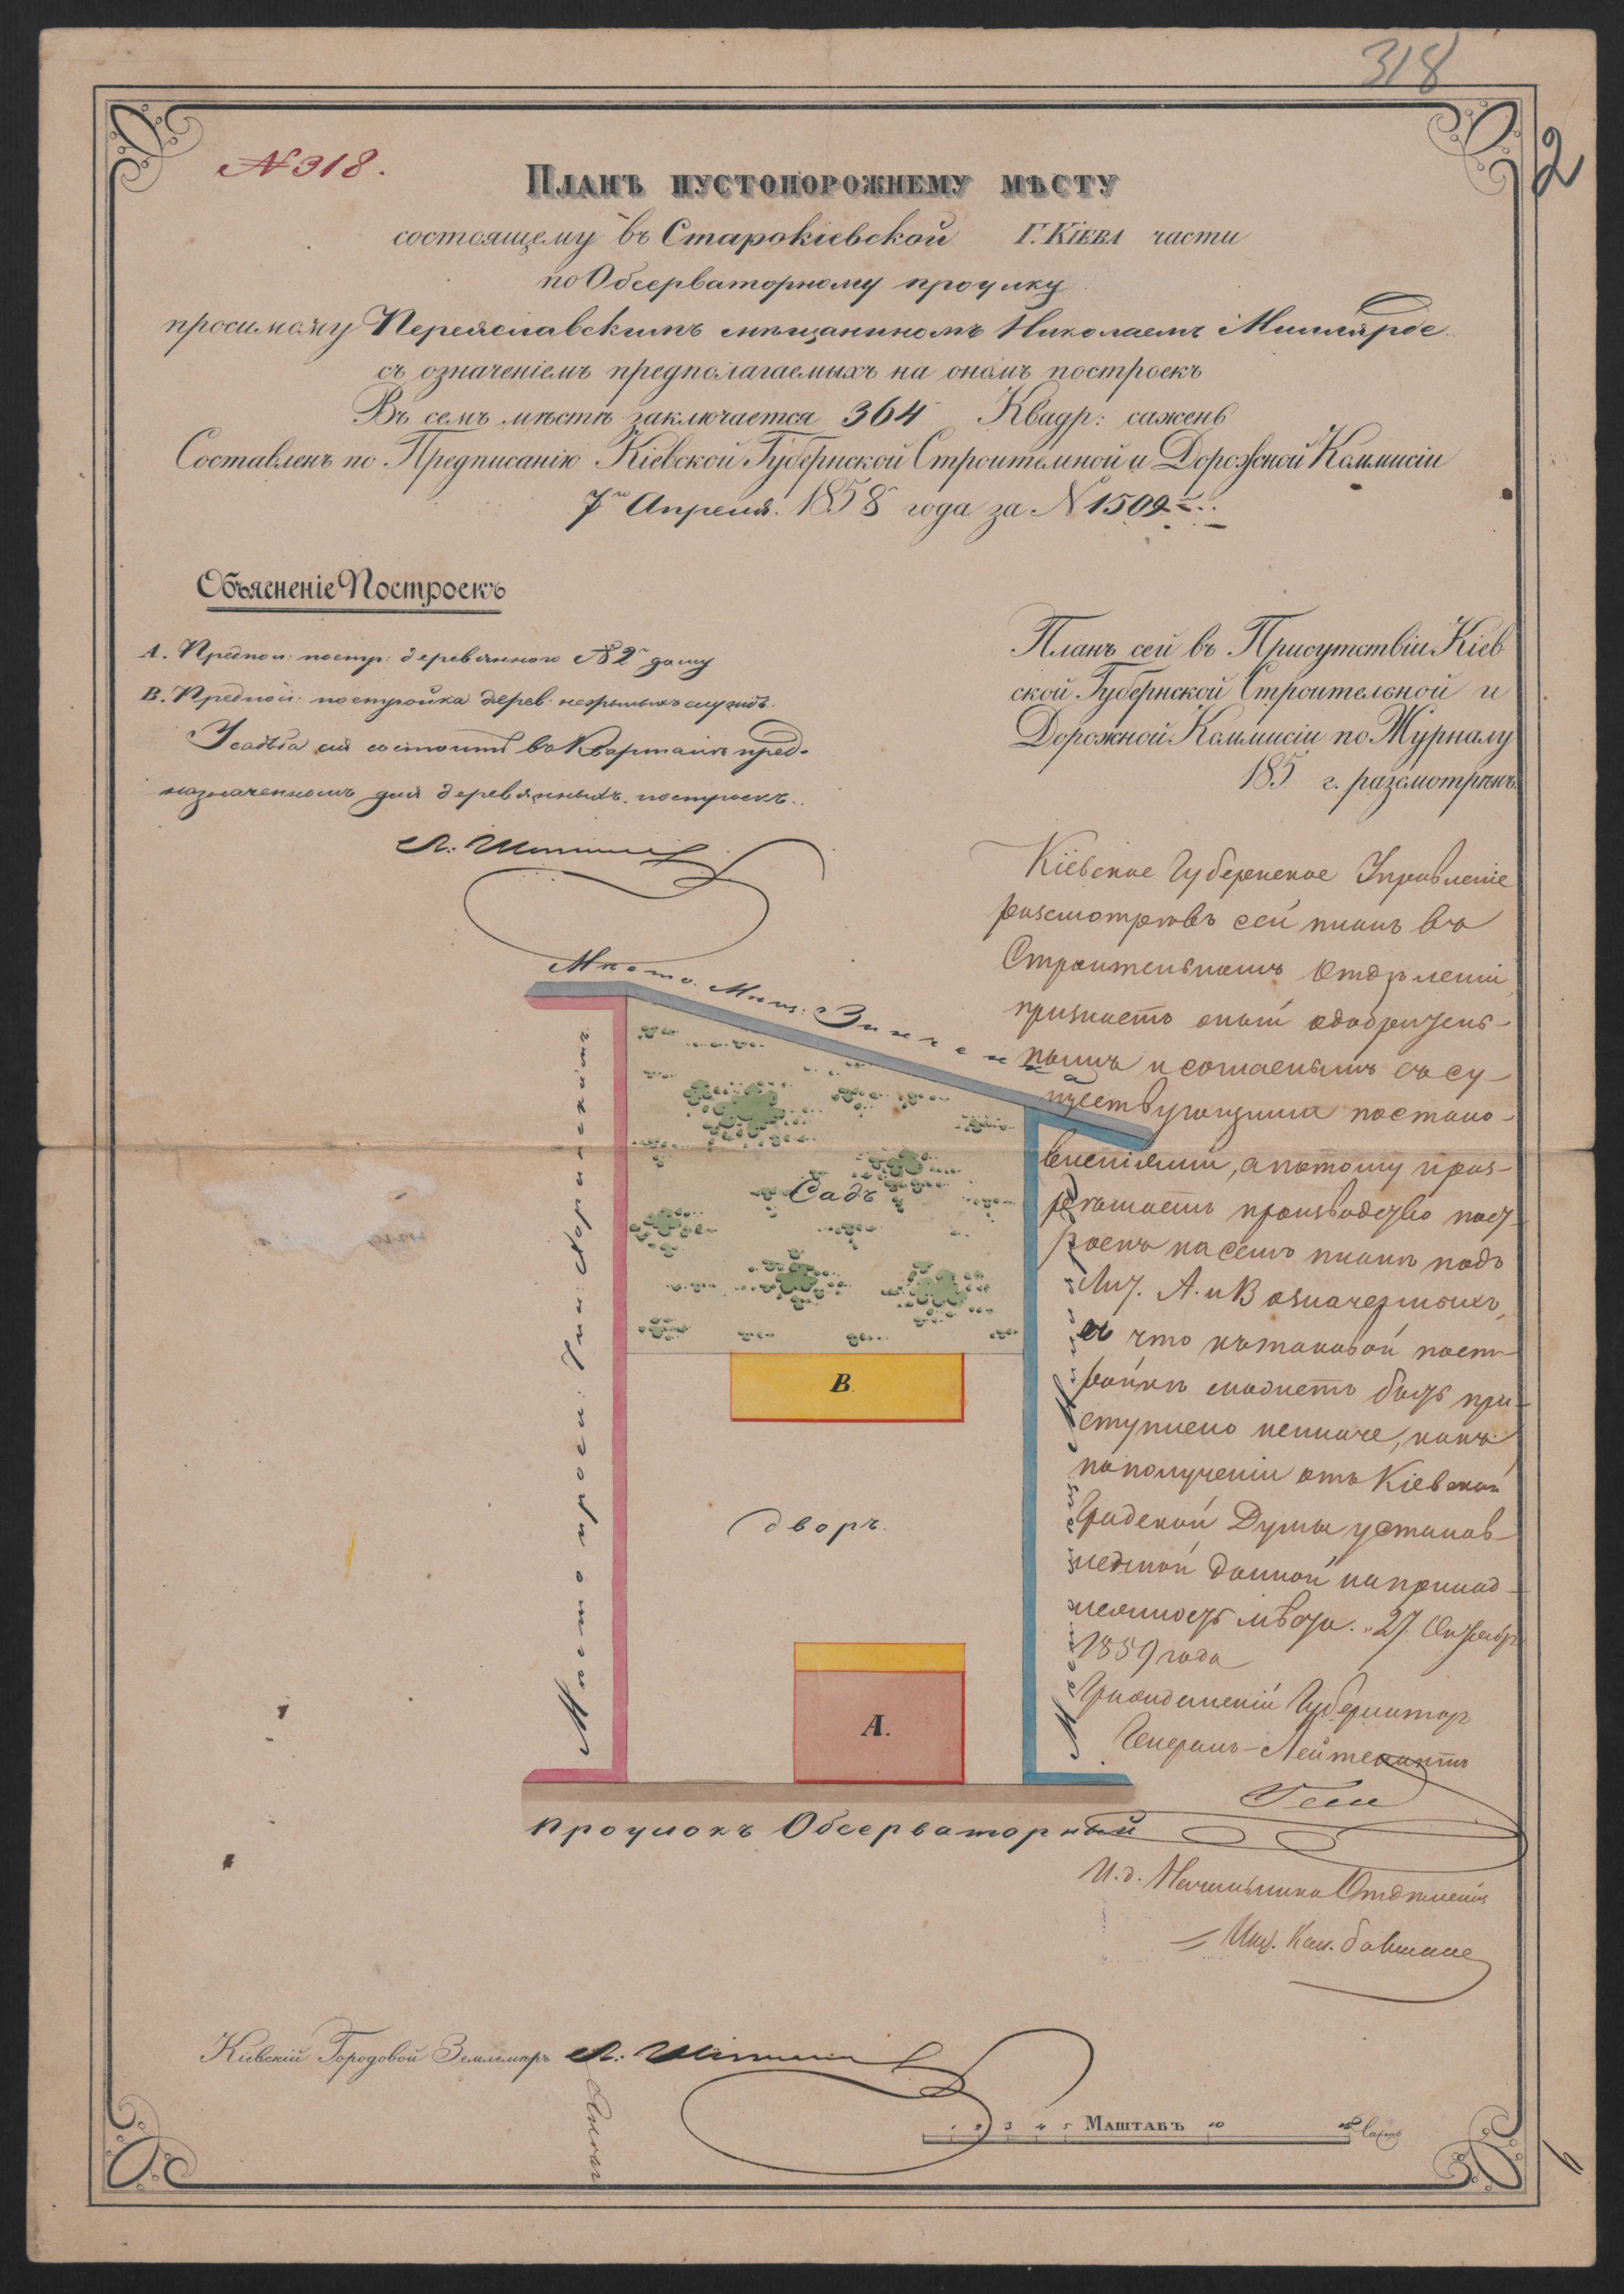 318
2
№ 318.
Планъ пустопорожнему мѣсту
состоящему въ Старокіевской Г. Кіева части
по Обсерваторному проулку
просимому Переяславскимъ мѣщаниномъ Николаемъ
съ означеніемъ предполагаемыхъ на ономъ построекъ
Въ семъ мѣстѣ заключается 364 Квадр: сажень
Составленъ по Предписанію Кіевской Губернской Строительной и Дорожной Коммисіи
7го Апреля 1858 года за № 1509
Объясненіе Построекъ
А. Предпол: постр: деревяннаго № 2го дому
В. Предпол: постройка дерев: нежилыхъ службъ.
Усадьба сія состоитъ въ Кварталѣ пред-
назначенномъ для деревянныхъ построекъ.
Планъ сей въ Присутствіи Кіев
ской Губернской Строительной и
Дорожной Коммисіи по Журналу
185 г. разсмотрѣнъ
Кіевское Губернское Управленіе
разсмотрѣвъ сей планъ въ
Строительномъ Отдѣленіи,
признаетъ оный
нымъ и согласнымъ съ су-
ществующими постано-
вленіями, а потому раз-
рѣшаетъ производство пост-
роекъ на семъ планѣ подъ
Лит. А. и В означенныхъ,
съ что къ таковой пост-
ройкѣ можетъ быть при-
ступлено неиначе, какъ
по полученіи отъ Кіевской
Градской Думы установ-
ленной данной на принад-
лежность мѣста. 27 Октября
1859 года
Гражданскій Губернаторъ
Генералъ-Лейтенантъ
Гессе
И. д. Начальника Отдѣленія
Инж. Кап.
Мѣсто Мѣщ:
Мѣсто просим:
Садъ
В
дворъ.
А.
Проулокъ Обсерваторный
Кіевскій Городовой Землемѣръ
1 2 3 4 5 Маштабъ 10 20 Сажень